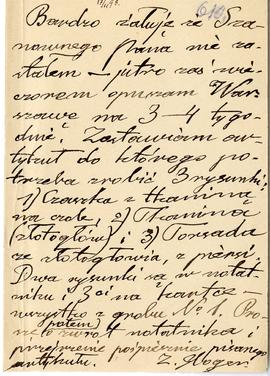 610
Bardzo żałuję że Sza-
nownego Pana nie za-
stałem – jutro zaś wie-
czorem opuszczam War-
szawę na 3-4 tygo-
dnie. Zostawiam ar-
tykuł do którego po-
trzeba zrobić 3 rysunki,
1) Czaszka z tkaniną
na czole, 2) Tkanina
(złotogłów) i 3) Torsada
ze złotogłowia, z piersi.
Dwa rysunki są w notat-
niku i 3ci na kartce
wszystko z grobu No 1. Pro-
szę (potem) o zwrot notatnika i
przejrzenie pośpiesznie pisanego
artykułu. Z. Gloger